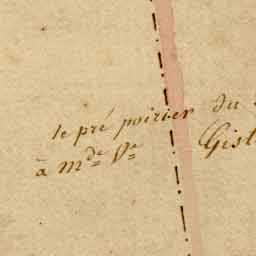 le pré poirier du
à mde Ve Gist